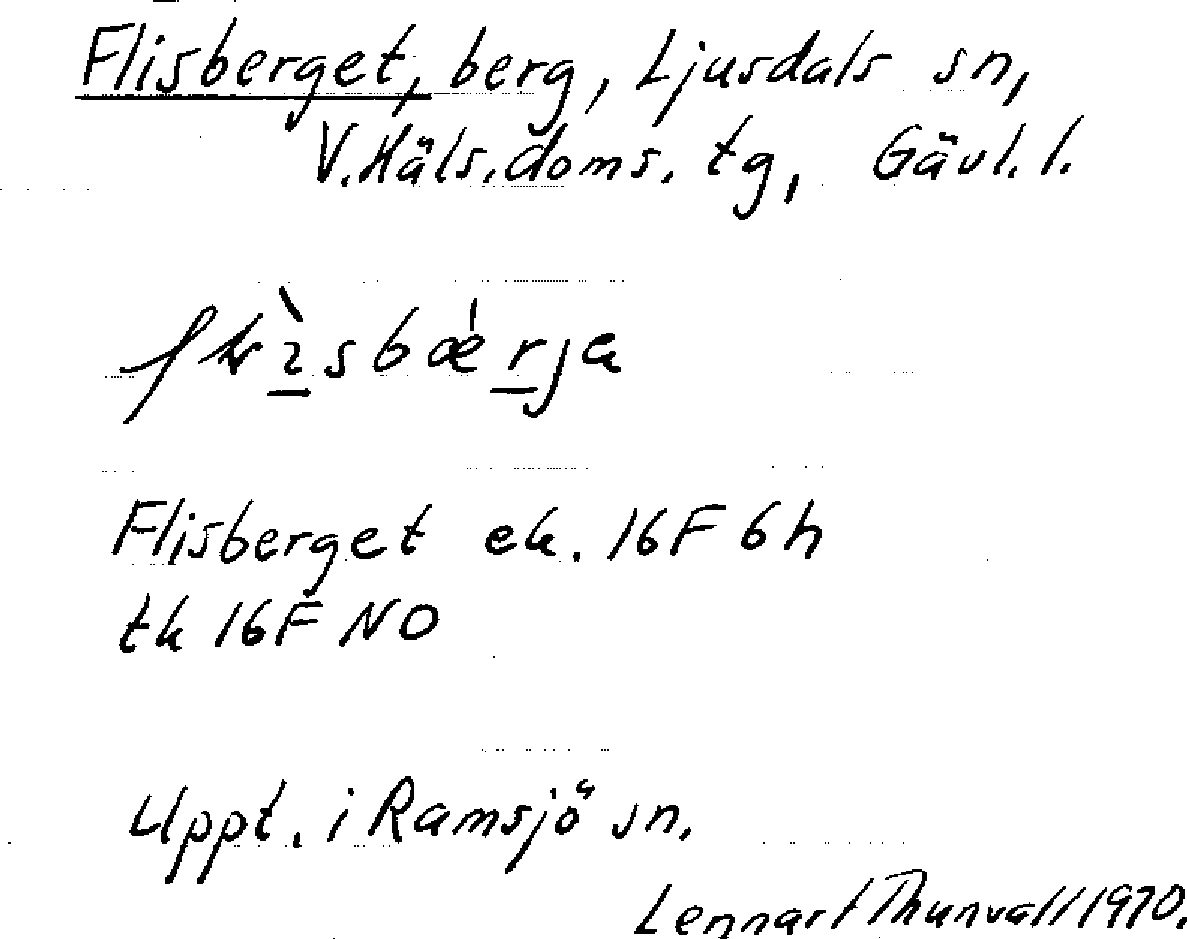 Flisberget, berg, Ljusdals sn,
V. Häls. doms. tg, Gävl. l.
Flisberget ek. 16F 6h
tk 16F NO
Uppt. i Ramsjö sn.
Lennart Thunvall 1970.